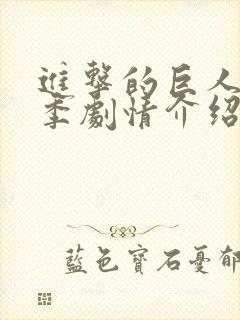 進擊的巨人
季劇情介紹
藍色寶石憂郁